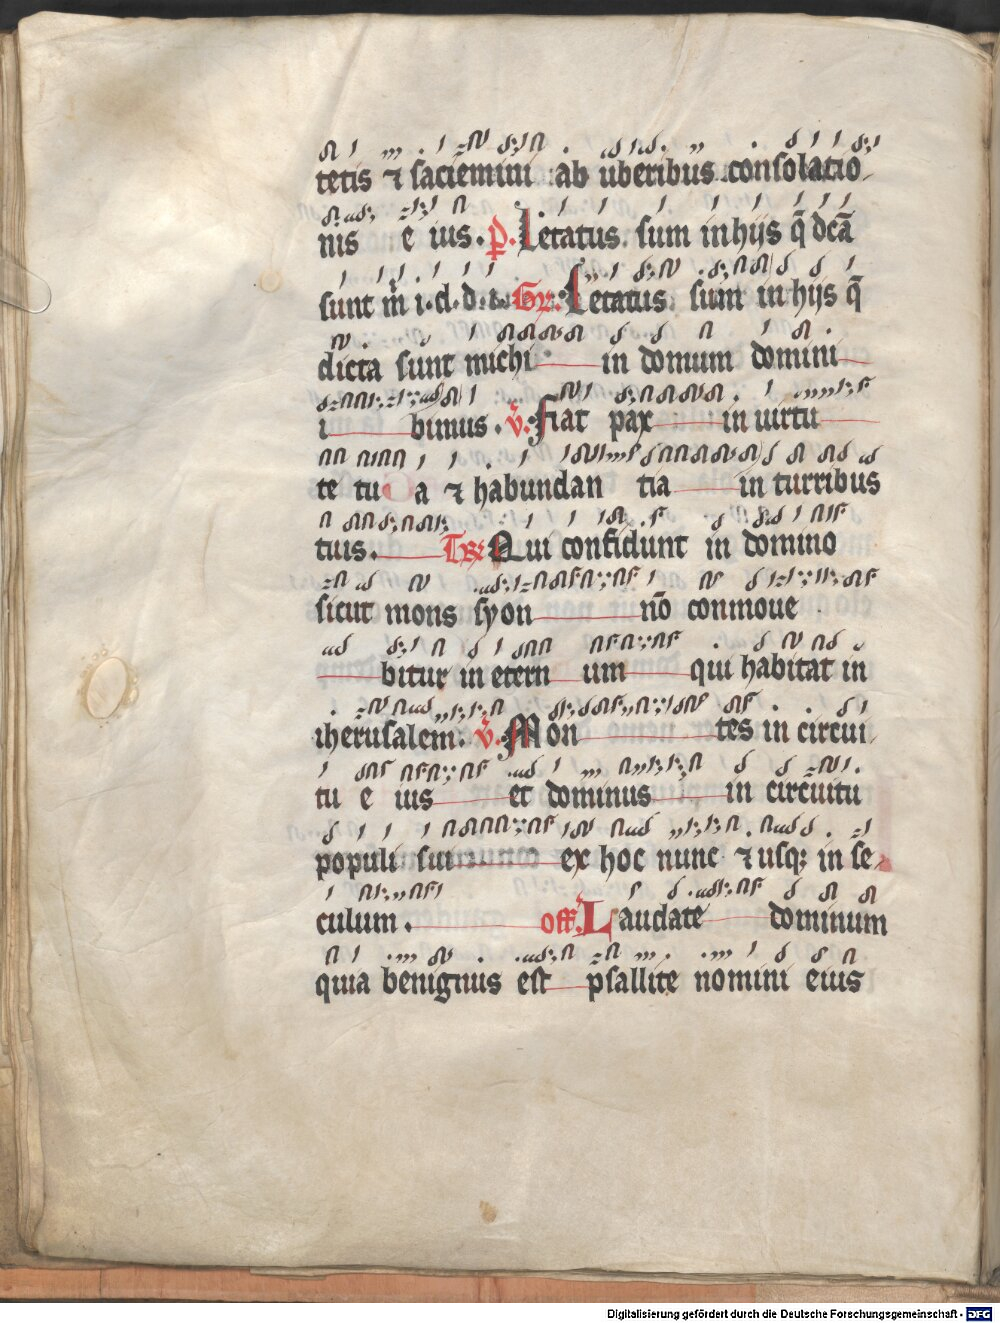 tetis ⁊ saciemini ab uberibus consolatio
nis e ius. p̲. Letatus sum in hijs q̄ dc̄a
sunt m̄ i. d. d. i. Gr. Letatus sum in hijs q̄
dicta sunt michi in domum domini
i bimus. v̄. Fiat pax in uirtu
te tu a ⁊ habundan tia in turribus
tuis. Tr Qui confidunt in domino
sicut mons syon nō conmoue
bitur in etern um qui habitat in
iherusalem. v̄. Mon tes in circui
tu e ius et dominus in circuitu
populi sui ex hoc nunc ⁊ usqꝫ in se
culum. off. Laudate dominum
quia benignus est psallite nomini eius
Digitalisierung gefördert durch die Deutsche Forschungsgemeinschaft - DFG